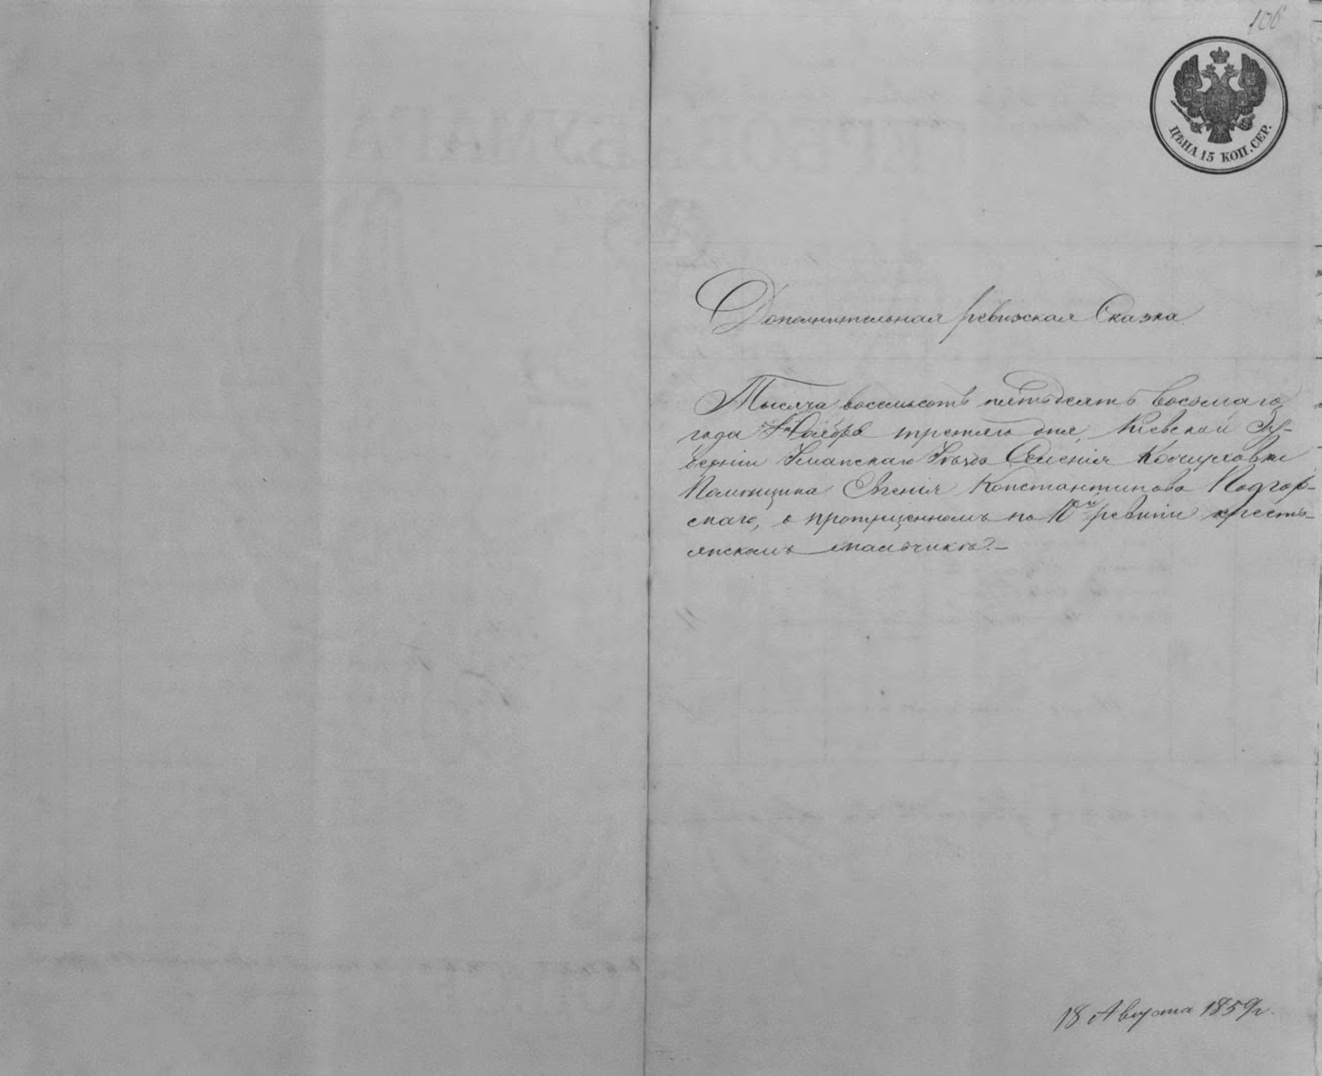 106
ЦѢНА 15 КОП. СЕР.
Дополнительная ревизская Сказка
Тысяча восемьсотъ пятьдесятъ восьмаго
года Ноября третьяго дня, Кіевской Гу-
берніи Уманскаго Уѣзда Селенія
Помѣщика Евгенія Константинова Подгор-
скаго, о пропущенномъ по 10й ревизіи кресть-
янскомъ мальчикѣ.—
18 Августа 1859 г.